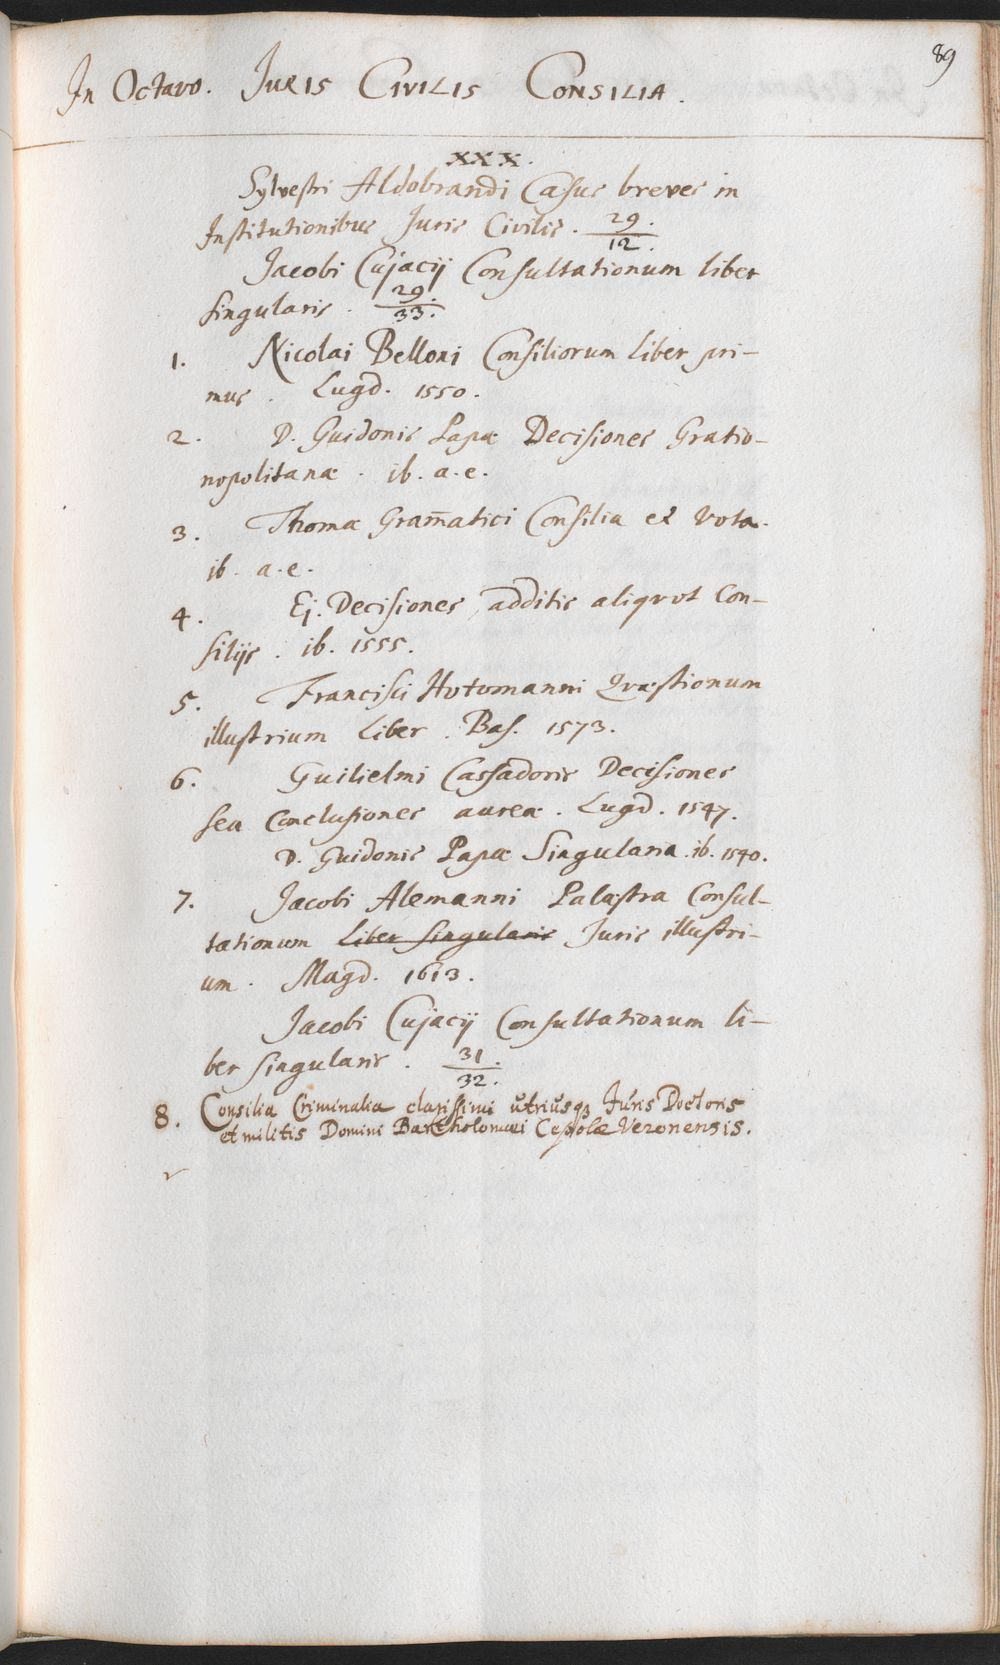 89
In Octavo. Juris Civilis Consilia.
XXX.
Sylvestri Aldobrandi Casus breves in
Institutionibus Juris Civilis. 29/12.
Jacobi Cujacij Consultationum liber
singularis. 29/33.
1. Nicolai Belloni Consiliorum Liber pri-
mus. Lugd. 1550.
2. D. Guidonis Papæ Decisiones Gratio-
nopolitanæ. ib. a. e.
3. Thomæ Gram̄atici Consilia et Vota.
ib. a. e.
4. Ej. Decisiones, additis aliquot Con-
silijs. ib. 1555.
5. Francisci Hotomanni Quæstionum
illustrium Liber. Bas. 1573.
6. Guilielmi Cassadoris Decisiones
seu Conclusiones aureæ. Lugd. 1547.
D. Guidonis Papæ Singularia. ib. 1540.
7. Jacobi Alemanni Palæstra Consul-
tationum Liber Singularis Juris illustri-
um. Magd. 1613.
Jacobi Cujacij Consultationum li-
ber singularis. 31/32.
8. Consilia Criminalia clarissimi utriusq3 Juris Doctoris
et militis Domini Bartholomæi Cepolæ Veronensis.